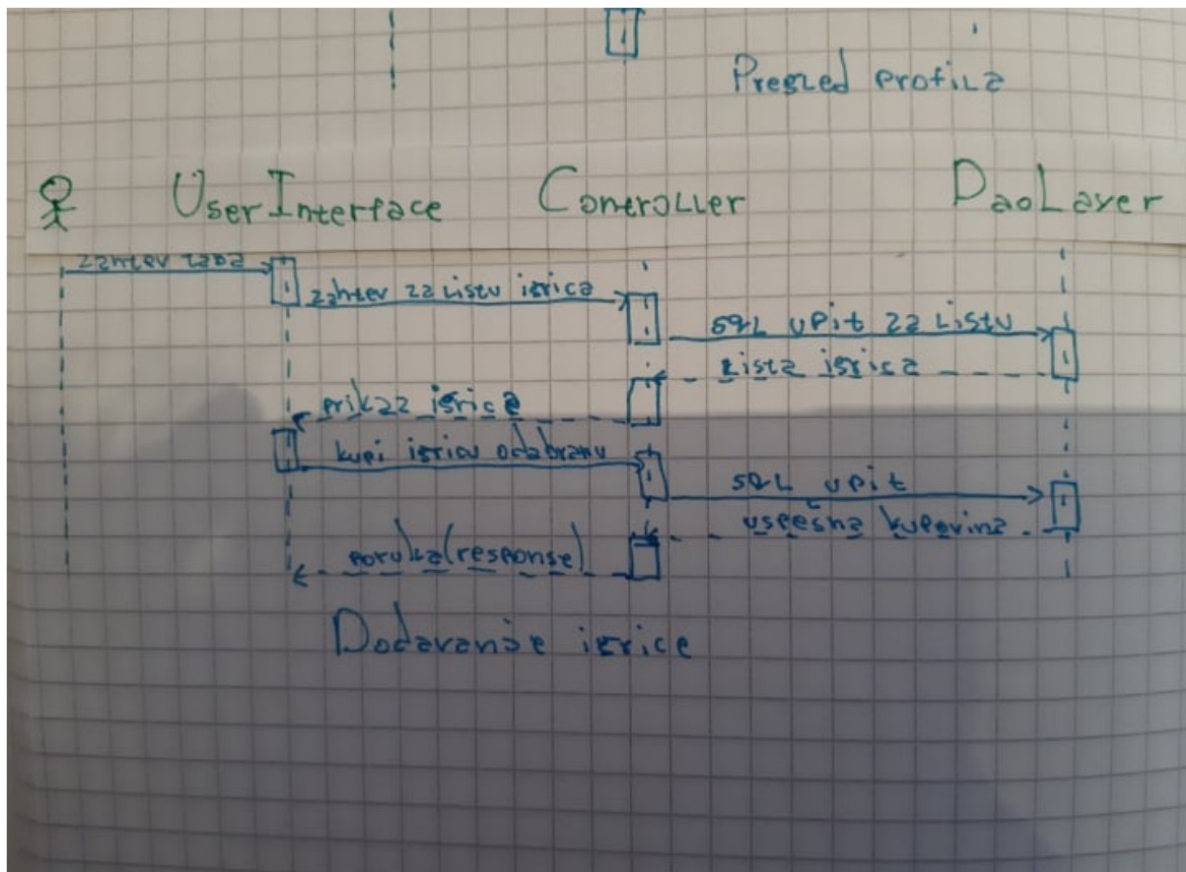 Pregled profila
UserInterface Controller DaoLayer
zahtev taba
zahtev za listu igrica
sql upit za listu
Lista igrica
prikaz igrica
kupi igricu odabranu
SQL upit
uspešna kupovina
poruka(response)
Dodavanje igrice